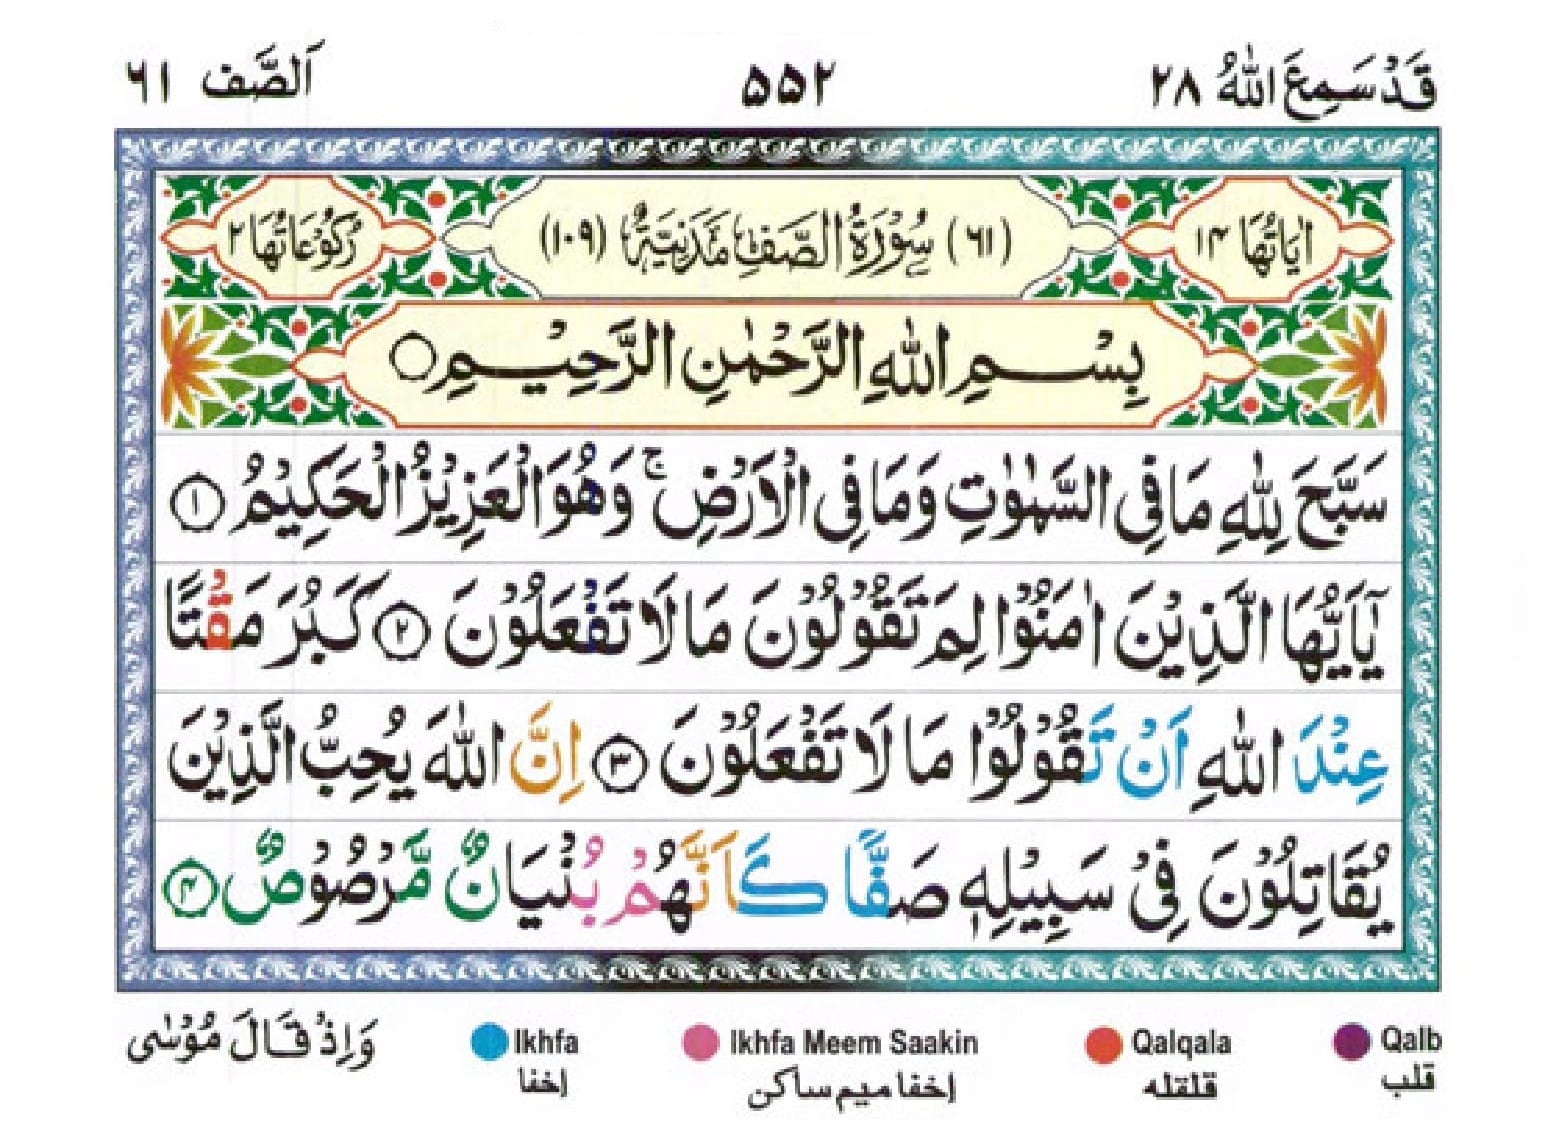 قَدْ سَمِعَ اللّٰهُ ۲۸
۵۵۲
اَلصَّف ۶۱
اٰيَاتُهَا ۱۴
(۶۱) سُوْرَةُ الصَّفِّ مَدَنِيَّةٌ (۱۰۹)
رُكُوْعَاتُهَا ۲
بِسْمِ اللّٰهِ الرَّحْمٰنِ الرَّحِيْمِ ○
سَبَّحَ لِلّٰهِ مَا فِى السَّمٰوٰتِ وَمَا فِى الْاَرْضِ ۚ وَهُوَ الْعَزِيْزُ الْحَكِيْمُ ①
يٰٓاَيُّهَا الَّذِيْنَ اٰمَنُوْا لِمَ تَقُوْلُوْنَ مَا لَا تَفْعَلُوْنَ ② كَبُرَ مَقْتًا
عِنْدَ اللّٰهِ اَنْ تَقُوْلُوْا مَا لَا تَفْعَلُوْنَ ③ اِنَّ اللّٰهَ يُحِبُّ الَّذِيْنَ
يُقَاتِلُوْنَ فِىْ سَبِيْلِهٖ صَفًّا كَاَنَّهُمْ بُنْيَانٌ مَّرْصُوْصٌ ④
وَاِذْ قَالَ مُوْسٰى
Ikhfa
إخفا
Ikhfa Meem Saakin
إخفا ميم ساكن
Qalqala
قلقله
Qalb
قلب